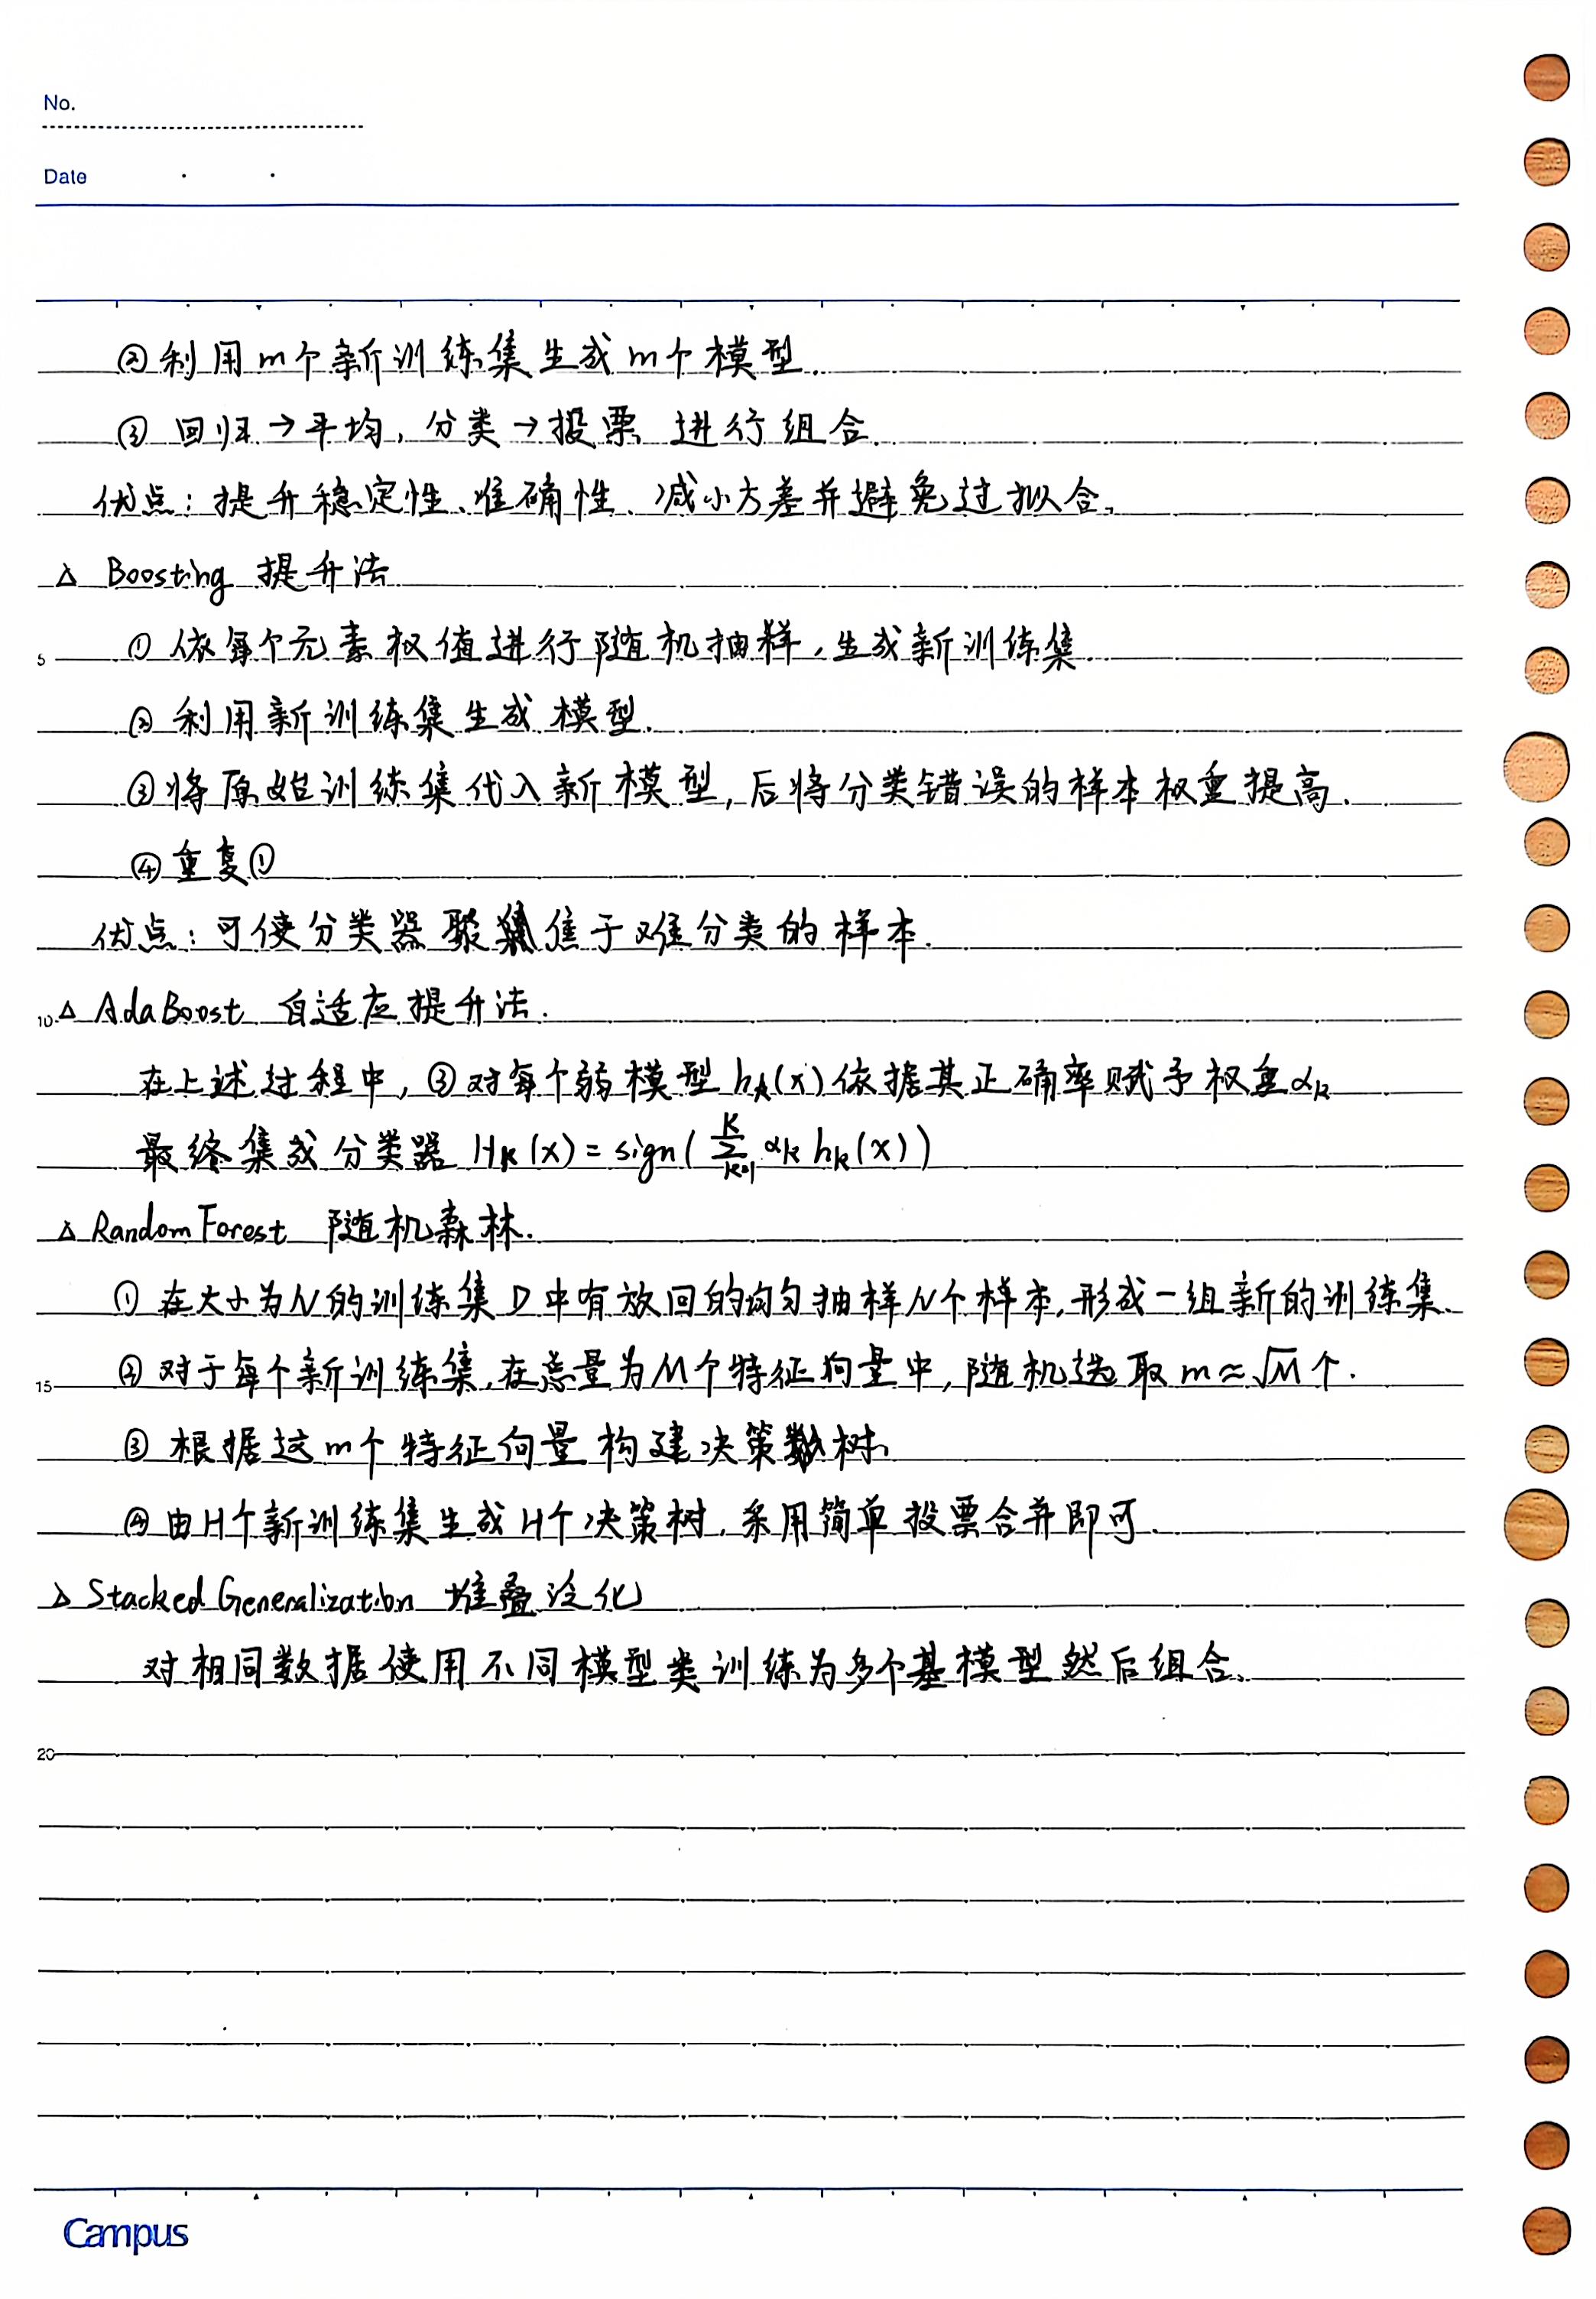 No.
Date
②利用m个新训练集生成m个模型.
③回归→平均,分类→投票 进行组合.
优点:提升稳定性、准确性、减小方差并避免过拟合。
△ Boosting 提升法
5 ①依每个元素权值进行随机抽样,生成新训练集.
②利用新训练集生成模型.
③将原始训练集代入新模型,后将分类错误的样本权重提高.
④重复①
优点:可使分类器聚焦于难分类的样本.
10 △ AdaBoost 自适应提升法.
在上述过程中,③对每个弱模型 hₖ(x) 依据其正确率赋予权重αₖ
最终集成分类器 Hₖ(x) = sign( ∑ₖ₌₁ᴷ αₖ hₖ(x))
△ Random Forest 随机森林.
①在大小为N的训练集D中有放回的均匀抽样N个样本,形成一组新的训练集.
15 ②对于每个新训练集,在总量为M个特征向量中,随机选取m≈√M个.
③根据这m个特征向量构建决策树.
④由H个新训练集生成H个决策树,采用简单投票合并即可.
△ Stacked Generalization 堆叠泛化
对相同数据使用不同模型类训练为多个基模型然后组合.
20
Campus